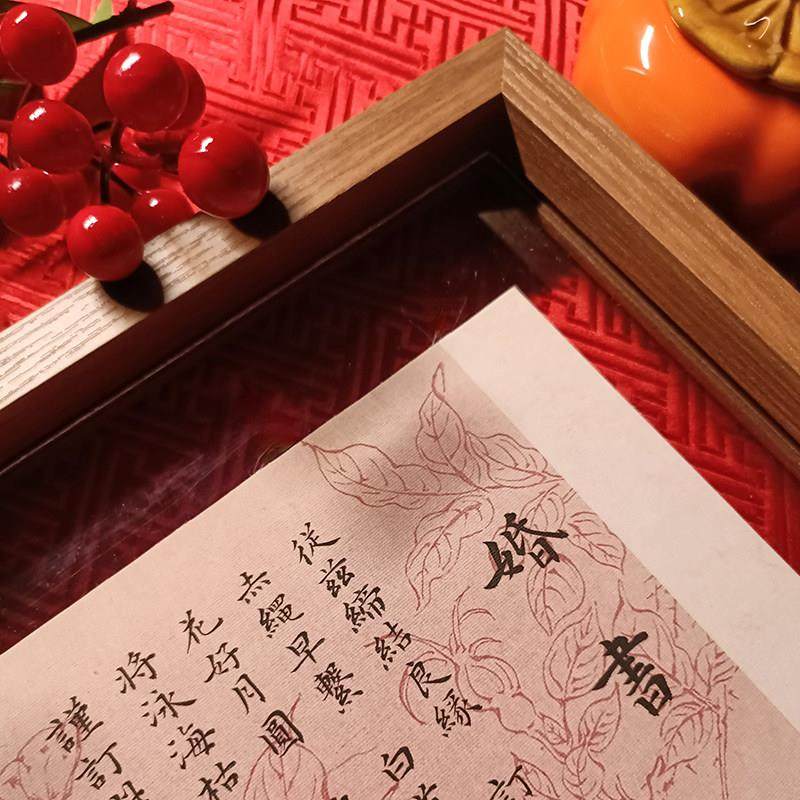 婚書
從茲締結良緣 訂
赤繩早繫 白
花好月圓
將泳海枯
謹訂